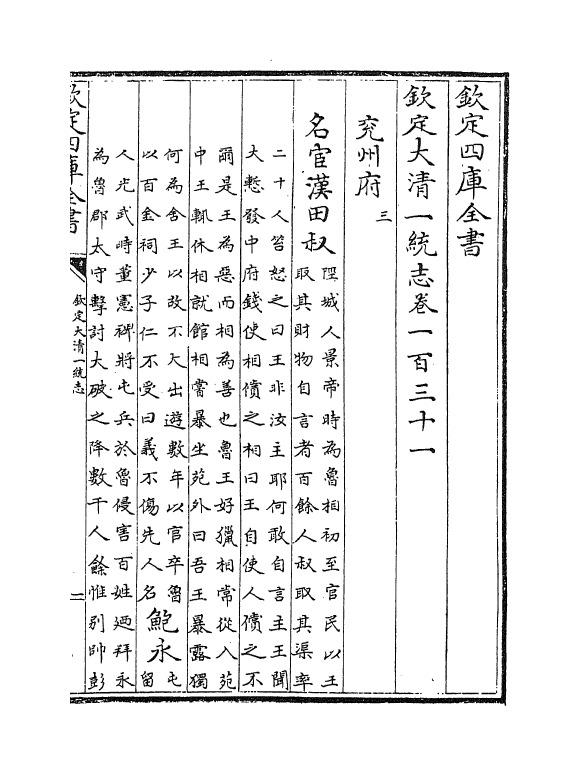 欽定四庫全書
欽定大清一統志卷一百三十一
兖州府 三
名宦漢田叔
陘城人景帝時為魯相初至官民以王
取其財物自言者百餘人叔取其渠率
二十人笞怒之曰王非汝主耶何敢自言主王聞
大慙發中府錢使相償之相曰王自使人償之不
爾是王為惡而相為善也魯王好獵相常從入苑
中王輒休相就館相嘗暴坐苑外曰吾王暴露獨
何為舍王以故不大出遊數年以官卒魯
以百金祠少子仁不受曰義不傷先人名
鮑永
屯
留
人光武時董憲裨將屯兵於魯侵害百姓廼拜永
為魯郡太守擊討大破之降數千人餘惟別帥彭
欽定四庫全書
欽定大清一統志
一